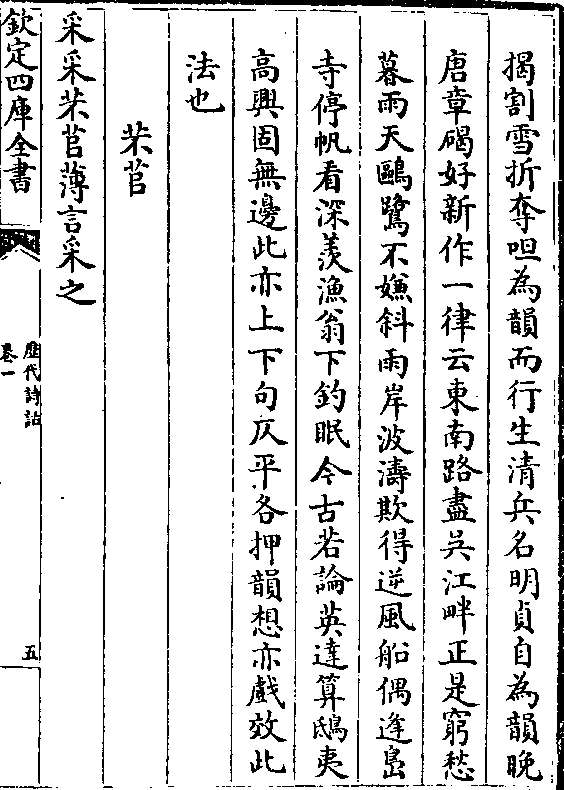 揭割雪折奪呾為韻而行生清兵名明貞自為韻晚
唐章碣好新作一律云東南路盡吳江畔正是窮愁
暮雨天鷗鷺不嫌斜雨岸波濤欺得逆風船偶逢島
寺停帆看深羨漁翁下釣眠今古若論英達算鴟夷
高興固無邊此亦上下句仄平各押韻想亦戲效此
法也
芣苢
采采芣苢薄言采之
欽定四庫全書
歷代詩話
卷一
五